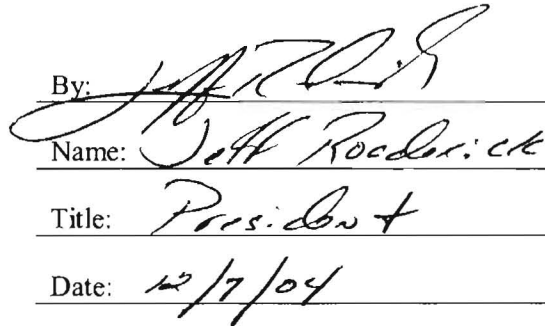 By:
Name: Jeff Roaderick
Title: President
Date: 12/7/04